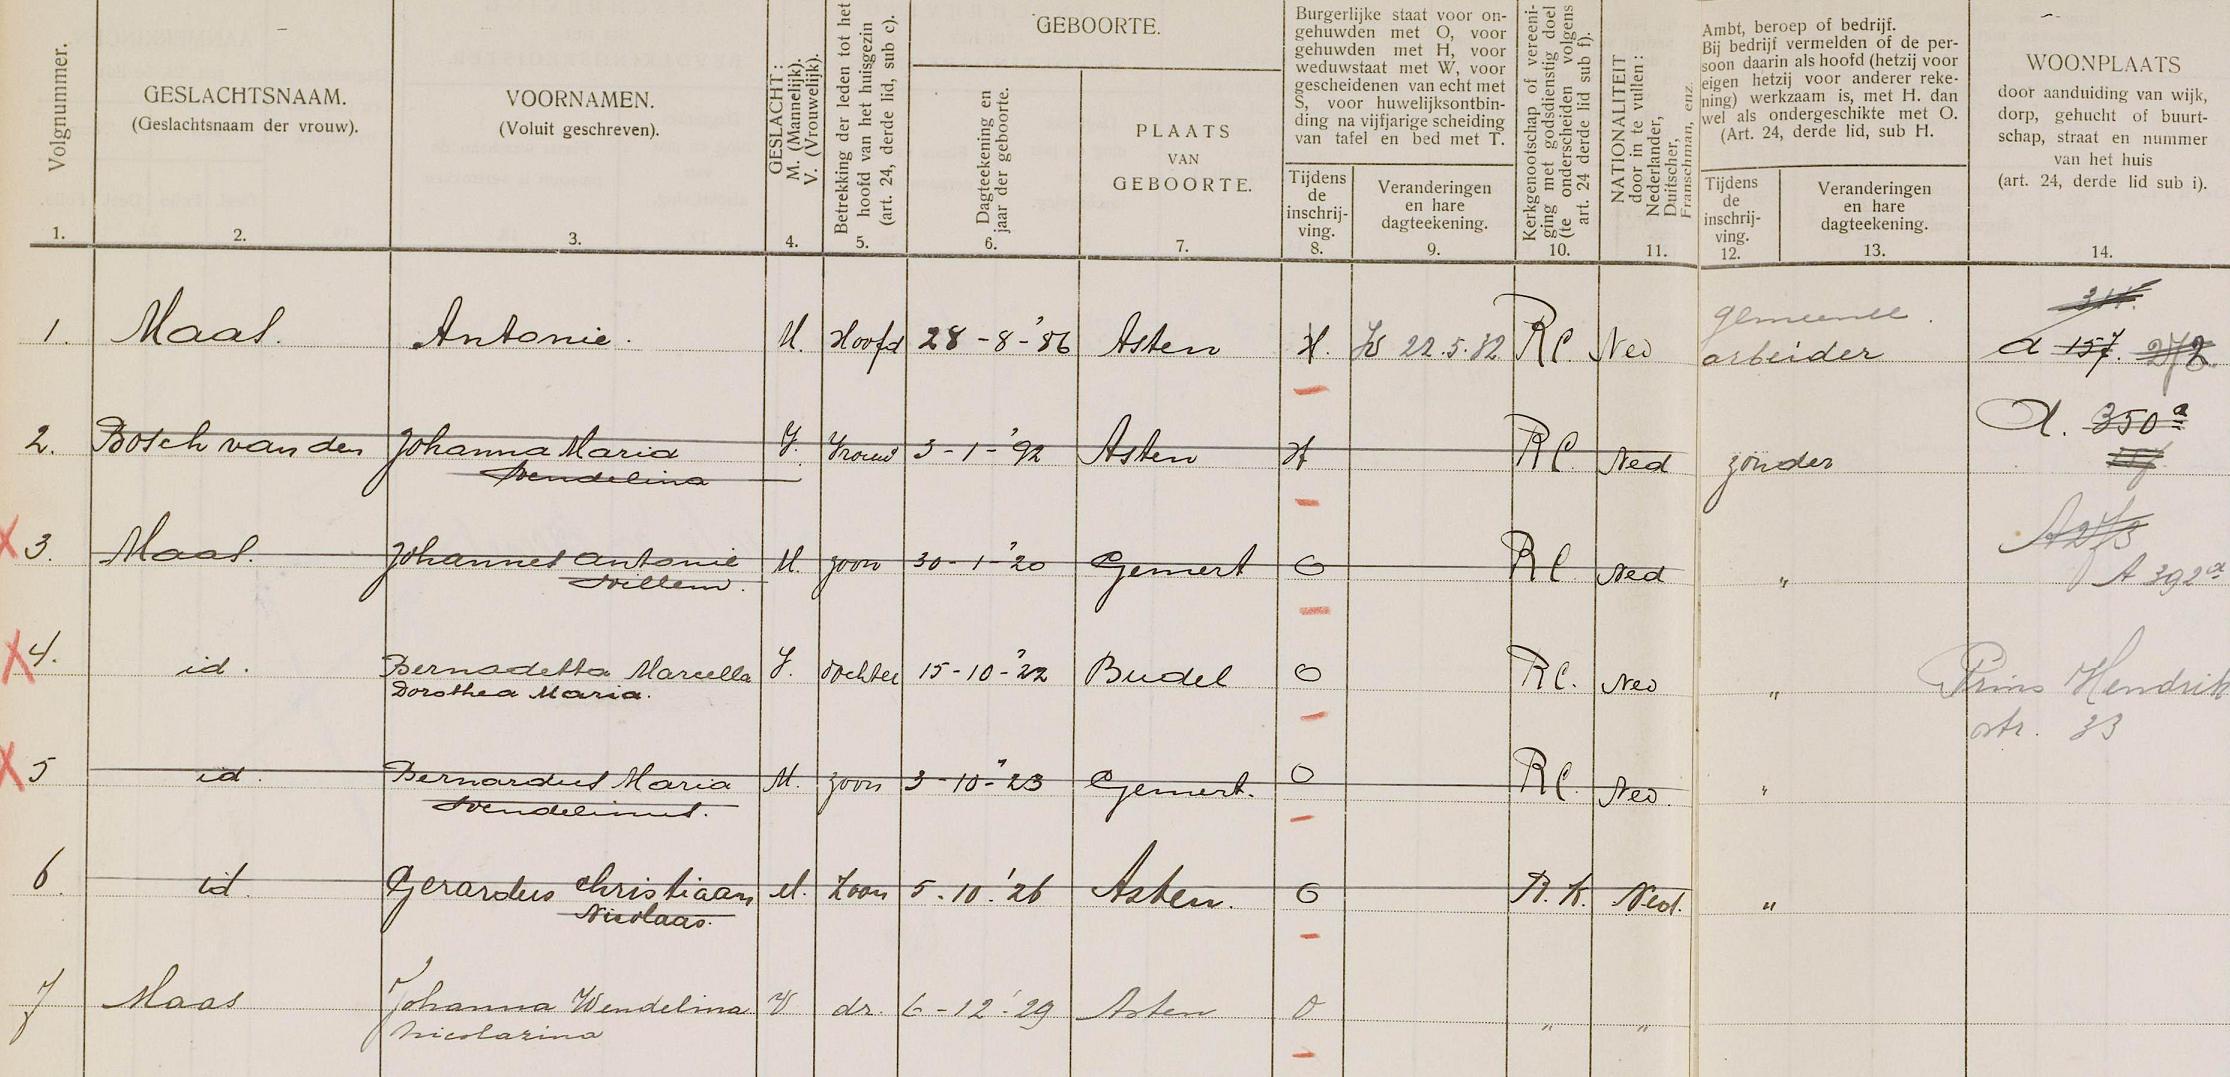 Volgnummer.
1.
GESLACHTSNAAM.
(Geslachtsnaam der vrouw).
2.
VOORNAMEN.
(Voluit geschreven).
3.
GESLACHT:
M. (Mannelijk).
V. (Vrouwelijk).
4.
Betrekking der leden tot het
hoofd van het huisgezin
(art. 24, derde lid, sub c).
5.
GEBOORTE.
Dagteekening en
jaar der geboorte.
6.
PLAATS
VAN
GEBOORTE.
7.
Burgerlijke staat voor on-
gehuwden met O, voor
gehuwden met H, voor
weduwstaat met W, voor
gescheidenen van echt met
S, voor huwelijksontbin-
ding na vijfjarige scheiding
van tafel en bed met T.
Tijdens
de
inschrij-
ving.
8.
Veranderingen
en hare
dagteekening.
9.
Kerkgenootschap of vereeni-
ging met godsdienstig doel
(te onderscheiden volgens
art. 24 derde lid sub f).
10.
NATIONALITEIT
door in te vullen:
Nederlander,
Duitscher,
Franschman, enz.
11.
Ambt, beroep of bedrijf.
Bij bedrijf vermelden of de per-
soon daarin als hoofd (hetzij voor
eigen hetzij voor anderer reke-
ning) werkzaam is, met H. dan
wel als ondergeschikte met O.
(Art. 24, derde lid, sub H.
Tijdens
de
inschrij-
ving.
12.
Veranderingen
en hare
dagteekening.
13.
WOONPLAATS
door aanduiding van wijk,
dorp, gehucht of buurt-
schap, straat en nummer
van het huis
(art. 24, derde lid sub i).
14.
1. Maas. Antonie. M. Hoofd 28-8-'86 Asten H. W 22.5.82 R.C. Ned gemeente
arbeider A 157. 272
2. Bosch van den Johanna Maria V. Vrouw 3-1-'92 Asten H R.C. Ned zonder A. 350a
Wendelina
3. Maas. Johannes Antonie M. zoon 30-1-'20 Gemert O R.C. Ned " A 273
Willem. A 392a
4. id. Bernadetta Marcella V. dochter 15-10-'22 Budel O R.C. Ned " Prins Hendrik
Dorothea Maria. str. 33
5 id. Bernardus Maria M. zoon 3-10-'23 Gemert. O R.C. Ned. "
Wendelinus.
6. id. Gerardus Christiaan M. Zoon 5.10.'26 Asten. O R.K. Ned. "
Nicolaas.
7 Maas Johanna Wendelina V dr. 6-12-'29 Asten O " "
Nicolasina